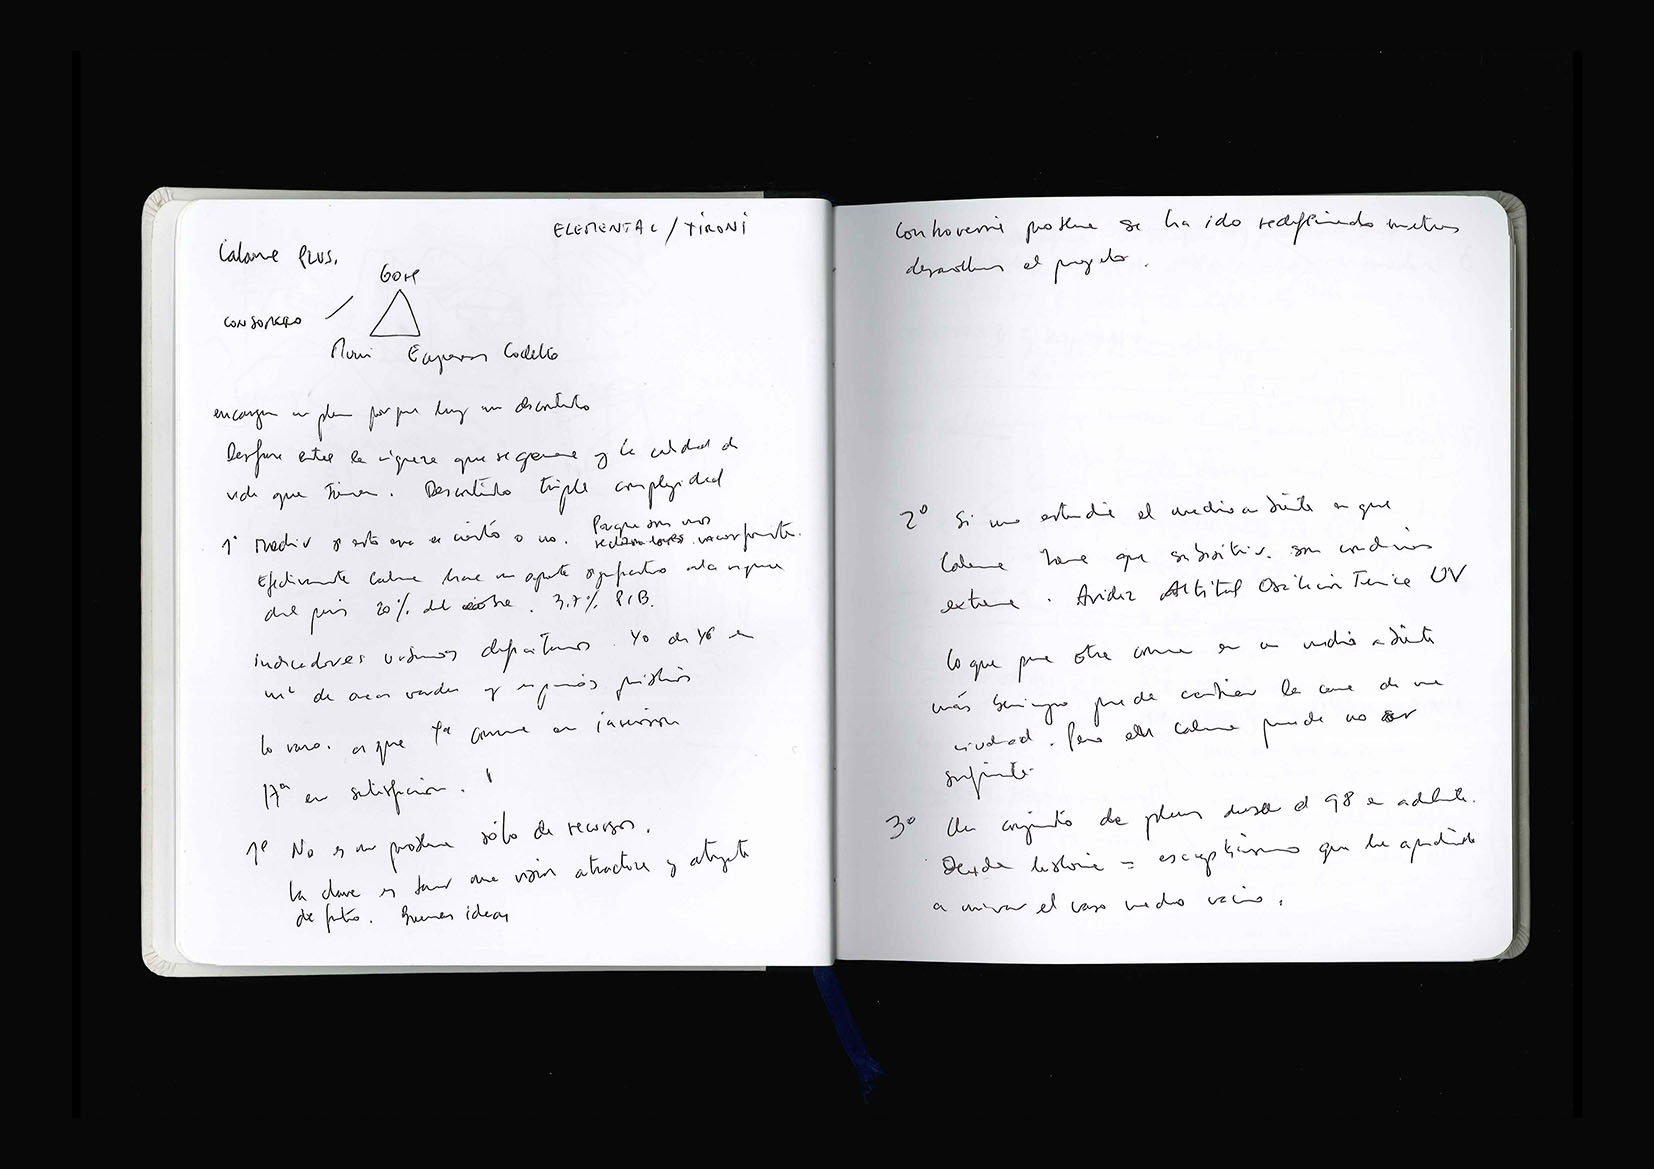 ELEMENTAL / TIRONI
Calama PLUS.
GORE
CONSORCIO
Muni Codelco
encargan un plan porque hay un descontento
Desfase entre la riqueza que se genera y la calidad de
vida que tienen. Descontento triple complejidad
1º Medir si esto era cierto o no. Porque son unos
Efectivamente Calama hace un aporte significativo a la riqueza
del país 20% del cobre. 3.7% PIB.
indicadores urbanos 40 de 46 en
m² de areas verdes y espacios públicos
7ª comuna en inversion
17ª en satisfaccion.
1º No es un problema sólo de recursos.
La clave es tener una vision atractora y
de futuro. Buenas ideas
se ha ido redefiniendo mientras
desarrollamos el proyecto.
2º Si uno estudia el medio ambiente en que
Calama tiene que subsistir. son condiciones
extremas. Aridez Altitud Oscilacion Termica UV
Lo que para otra comuna en un medio ambiente
más benigno puede cambiar la cara de una
ciudad. Pero en Calama puede no ser
suficiente.
3º Un conjunto de planes desde el 98 en adelante.
Desde historia = escepticismo que ha aprendido
a mirar el vaso medio vacio.